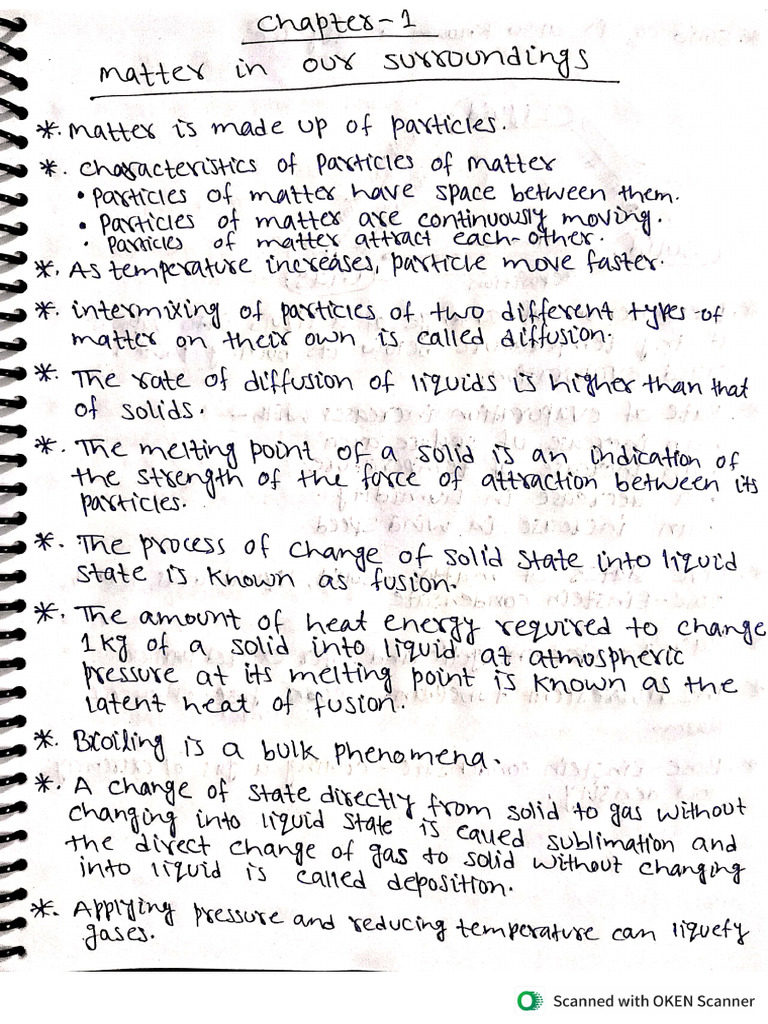 Chapter-1
matter in our surroundings
*. matter is made up of particles.
*. characteristics of particles of matter
• Particles of matter have space between them.
• Particles of matter are continuously moving.
• Particles of matter attract each-other.
*. As temperature increases, particle move faster.
*. intermixing of particles of two different types of
matter on their own is called diffusion.
*. The rate of diffusion of liquids is higher than that
of solids.
*. The melting point of a solid is an indication of
the strength of the force of attraction between its
particles.
*. The process of change of solid state into liquid
state is known as fusion.
*. The amount of heat energy required to change
1kg of a solid into liquid at atmospheric
pressure at its melting point is known as the
latent heat of fusion.
*. Boiling is a bulk phenomena.
*. A change of state directly from solid to gas without
changing into liquid state is called sublimation and
the direct change of gas to solid without changing
into liquid is called deposition.
*. Applying pressure and reducing temperature can liquefy
gases.
Scanned with OKEN Scanner